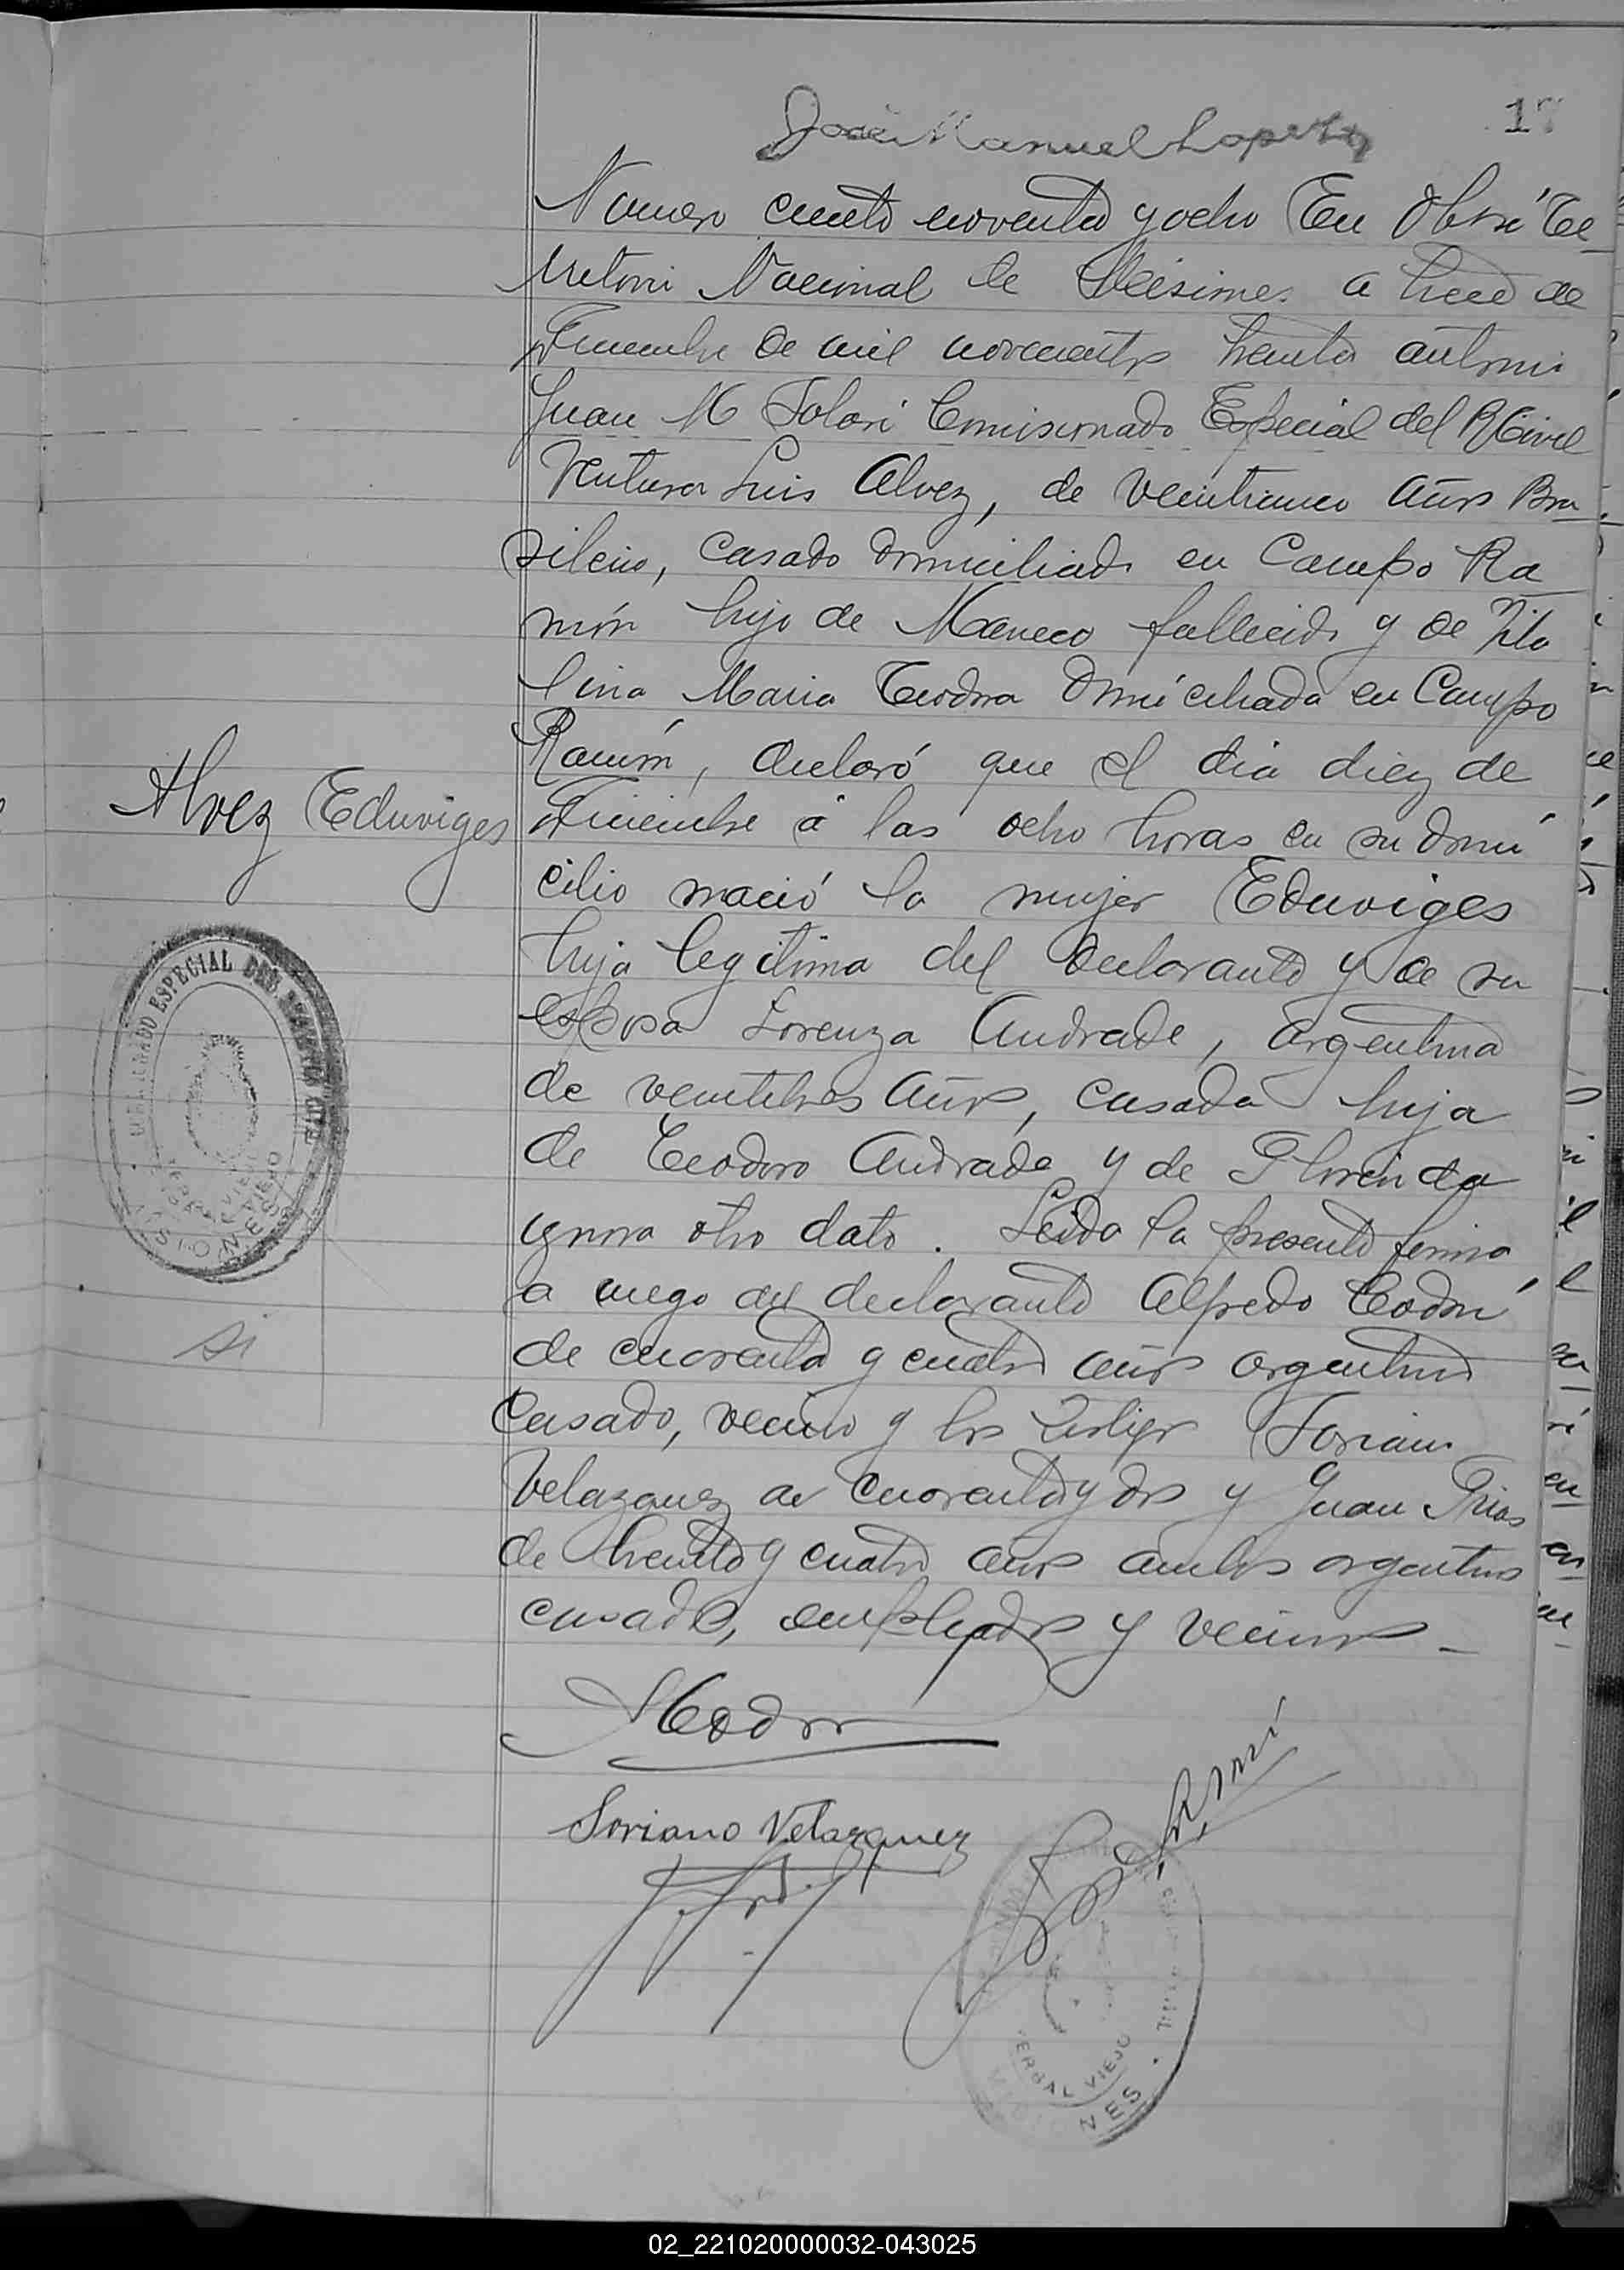 José Manuel Lopez
17
Numero ciento noventa y ocho En Oberá Te
rritorio Nacional de Misiones a trece de
de mil novecientos treinta ante mi
Juan M Solari Comisionado Especial del R Civil
Ventura Luis Alvez, de veinticinco años Bra
sileño, casado domiciliado en Campo Ra
món hijo de Maneco fallecido y de
lina Maria Teodora domiciliada en Campo
Ramón, declaró que el dia diez de
á las ocho horas en su domi
cilio nació la mujer Eduviges
hija legitima del declarante y de su
esposa Lorenza Andrade, argentina
de veintitres años, casada hija
de Teodoro Andrade y de Florinda
ignora otro dato. Leida la presente firma
a ruego del declarante Alfredo
de cuarenta y cuatro años argentino
casado, vecino y los testigos Soriano
Velazquez de cuarenta y dos y Juan Frias
de treinta y cuatro años ambos argentinos
casados, empleados y vecinos -
Alvez Eduviges
ESPECIAL DEL
YERBAL VIEJO
MISIONES
si
Soriano Velazquez
YERBAL VIEJO
MISIONES
02_221020000032-043025